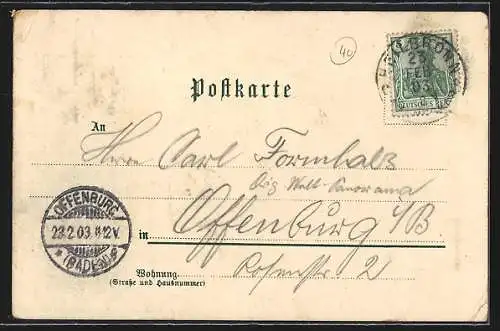 40
HEILBRONN
23
FEB
03
DEUTSCHES REICH
Postkarte
An
Herrn Carl Formhals
Welt-Panorama
OFFENBURG
23.2.03. 12V.
* (BADEN) *
in Offenburg i/B
Rosenstraße 2
Wohnung
(Straße und Hausnummer)